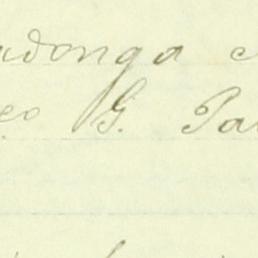 udonga
eo G. Pa